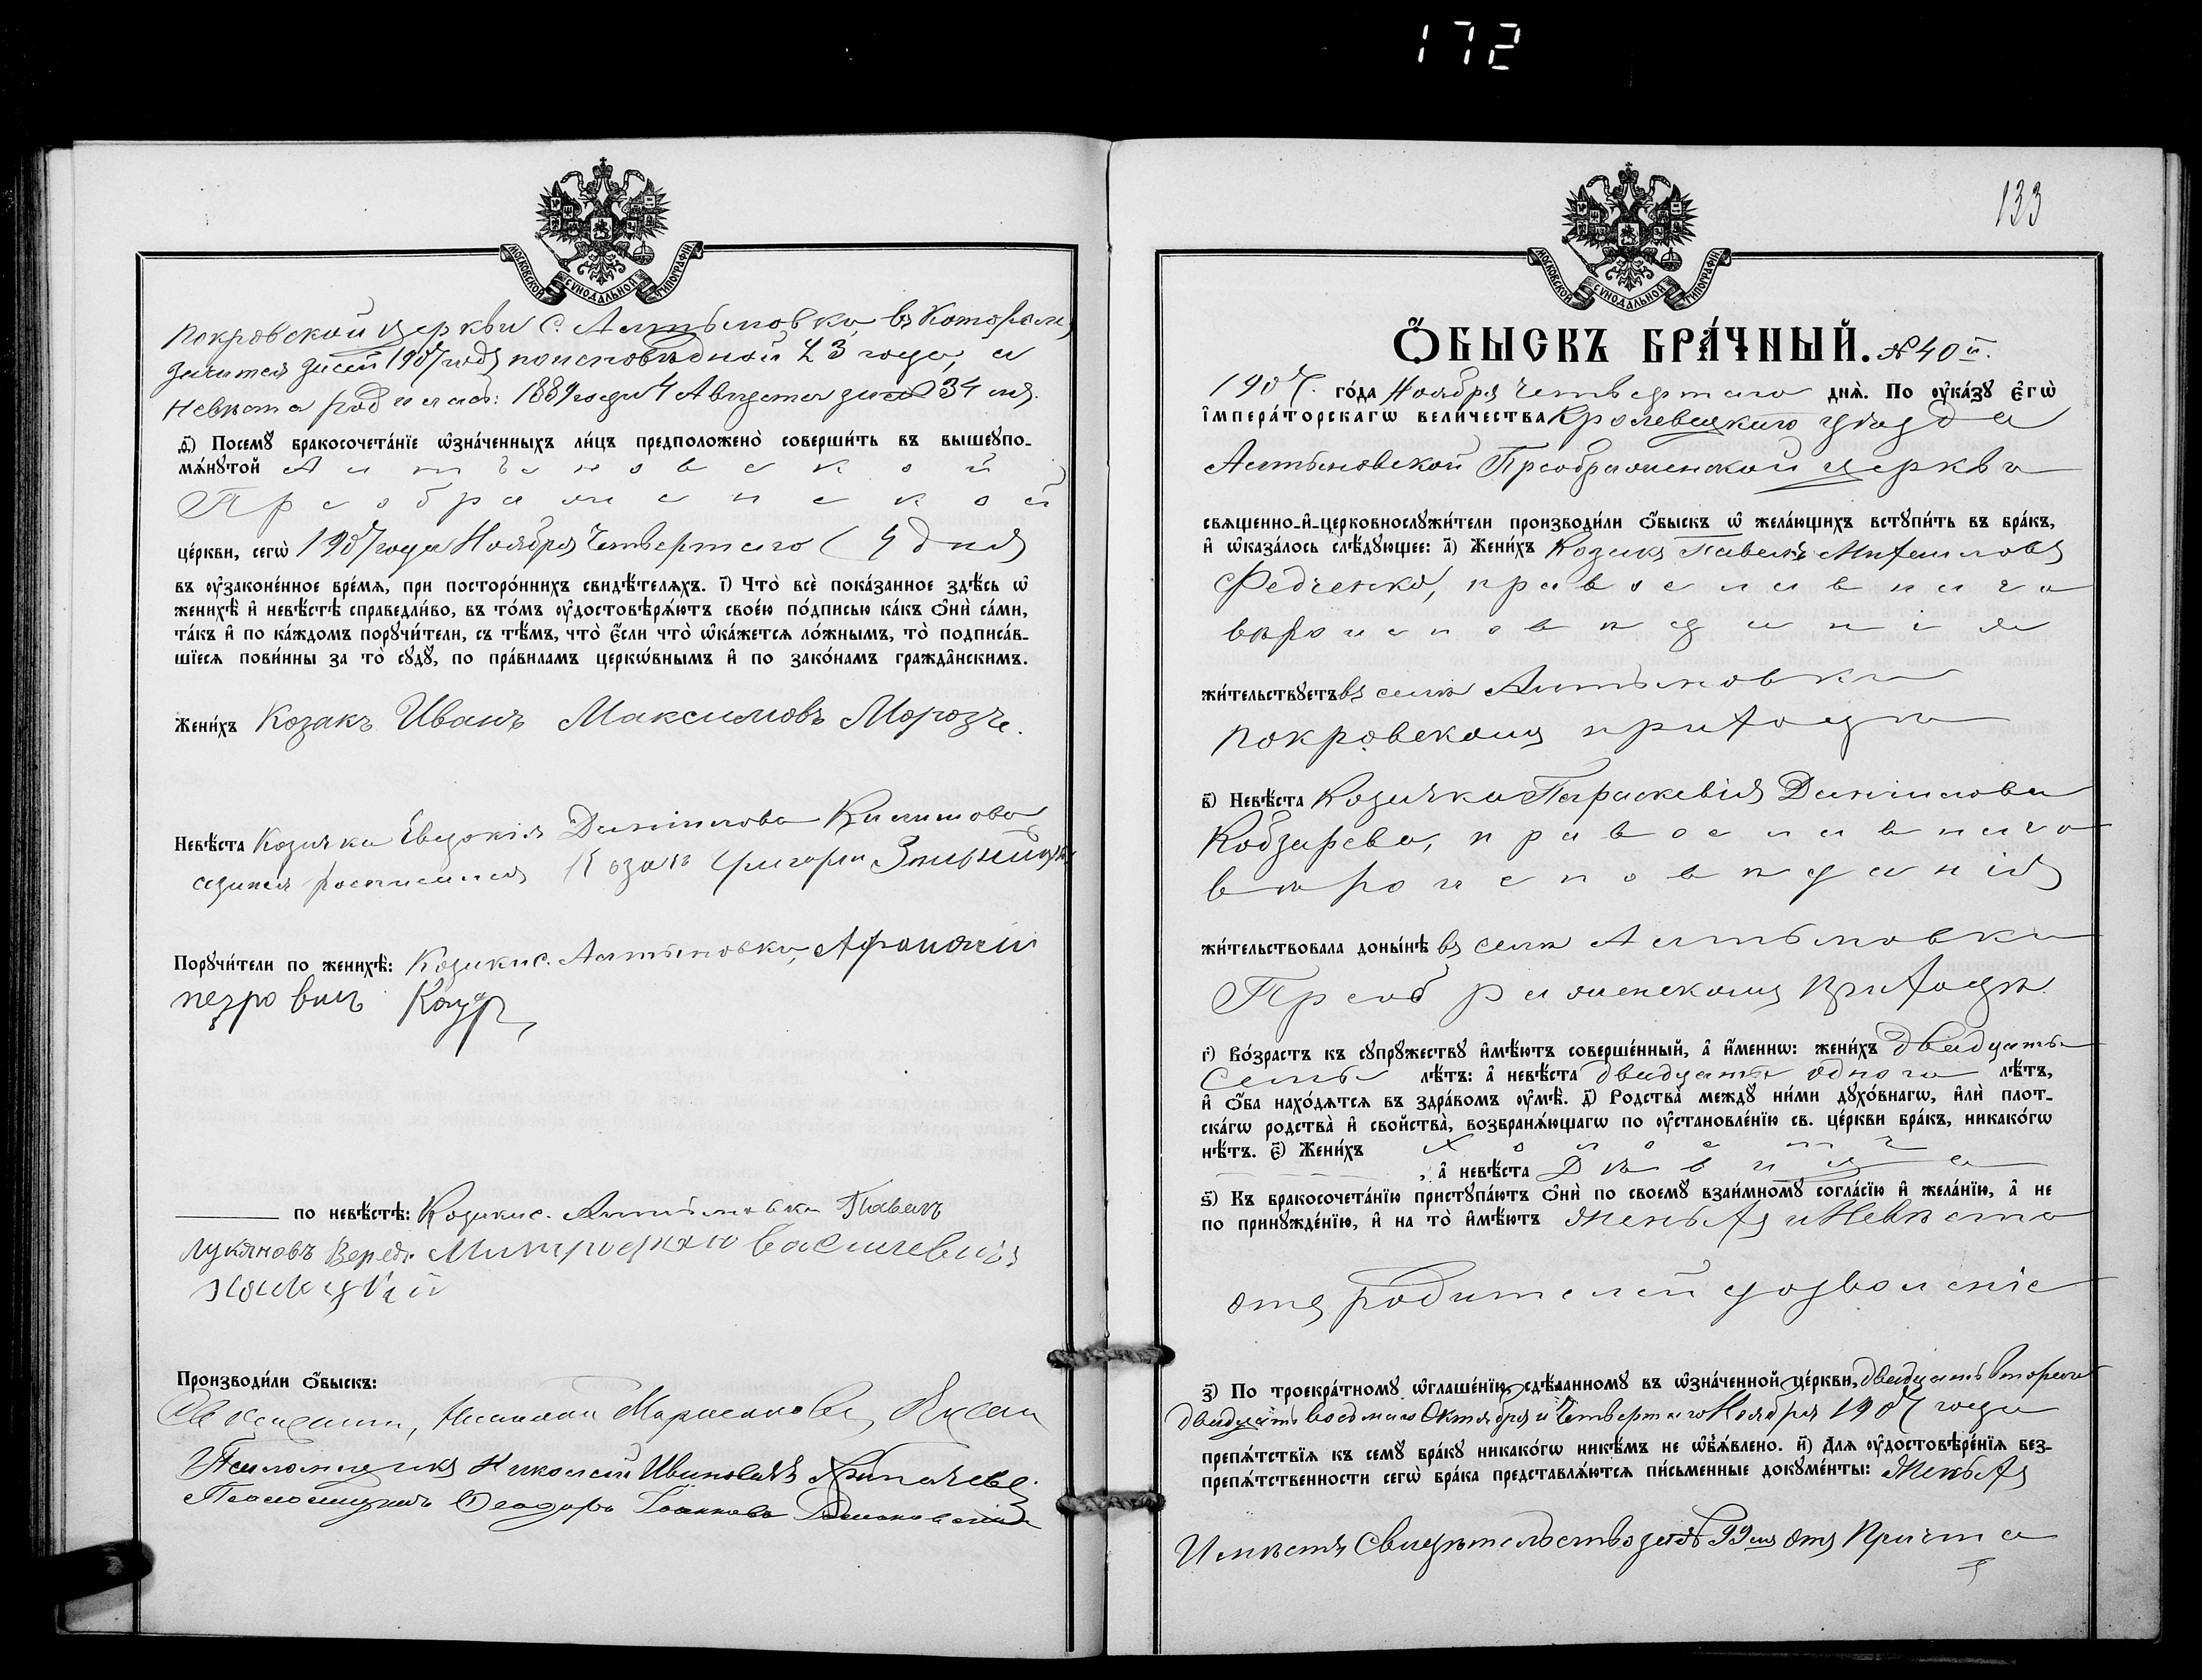 172
МОСКОВСКОЙ СѴНОДАЛЬНОЙ ТИПОГРАФІИ
Покровской церкви с. Алтыновки, въ которомъ
значится 1907 года 23 года, а
невѣста родилась: 1889 года 4 Августа за № 34 мъ.
д҃) Посемꙋ бракосочета́нїе ѡ҆зна́ченныхъ ли́цъ предположено̀ соверши́ть въ вышеꙋпо-
мѧ́нꙋтой Алтыновской
Преображенской
це́ркви, сегѡ̀ 1907 года Ноября Четвертаго (4 дня)
въ ᲂу҆законе́нное вре́мѧ, при посторо́ннихъ свидѣ́телѧхъ. і҃) Что̀ всѐ пока́занное здѣ́сь ѡ҆
женихѣ̀ и҆ невѣ́стѣ справедли́во, въ то́мъ ᲂу҆достовѣрѧ́ютъ свое́ю по́дписью ка́къ ѻ҆нѝ са́ми,
та́къ и҆ по ка́ждомъ порꙋчи́тели, съ тѣ́мъ, что̀ є҆́сли что̀ ѡ҆ка́жетсѧ ло́жнымъ, то̀ подписа́в-
шїесѧ пови́нны за то̀ сꙋдꙋ̀, по пра́виламъ церкѡ́внымъ и҆ по зако́намъ гражда̑нскимъ.
Жени́хъ Козакъ Иванъ Максимовъ Морозъ.
Невѣ́ста Козачка Евдокія Даниілова
Козакъ Григорій
Порꙋчи́тели по женихѣ̀: Козаки с. Алтыновки, Афанасій
Петровичъ
по невѣ́стѣ: Козаки с. Алтыновки Павелъ
Лукяновъ Митрофанъ Василевичъ
Произво́дили ѻ҆́быскъ:
Священникъ
Псаломщикъ Николай Ивановичъ
Псаломщикъ Ѳеодоръ Іоанновъ
133
МОСКОВСКОЙ СѴНОДАЛЬНОЙ ТИПОГРАФІИ
Ѻ҆́БЫСКЪ БРА́ЧНЫЙ. № 40 й.
1907. го́да Ноября Четвертаго днѧ̀. По ᲂу҆ка́зꙋ Є҆гѡ̀
І҆мпера́торскагѡ вели́чества Кролевецкаго уѣзда
Алтыновской Преображенской церкви
свѧще́нно-и҆-церковнослꙋжи́тели производи́ли ѻ҆́быскъ ѡ҆ жела́ющихъ встꙋпи́ть въ бра́къ,
и҆ ѡ҆каза́лось слѣ́дꙋющее: а҃) Жени́хъ Козакъ Павелъ Михаиловъ
Федченко, православнаго
вѣроисповѣданія
жи́тельствꙋетъ въ селѣ Алтыновкѣ
Покровскому приходѣ
в҃) Невѣ́ста Козачка Параскевія Даниілова
Кобзарева, православнаго
вѣроисповѣданія
жи́тельствовала доны́нѣ въ селѣ Алтыновки
Преображенскому приходѣ
г҃) Во́зрастъ къ сꙋпрꙋ́жествꙋ и҆мѣ́ютъ соверше́нный, а҆ и҆́меннѡ: жени́хъ двадцать
семь лѣ́тъ: а҆ невѣ́ста двадцать одного лѣ́тъ,
и҆ ѻ҆́ба нахо́дѧтсѧ въ здра́вомъ ᲂу҆мѣ̀. д҃) Родства̀ междꙋ̀ ни́ми дꙋхо́внагѡ, и҆лѝ плот-
ска́гѡ родства̀ и҆ сво́йства̀, возбранѧ́ющагѡ по ᲂу҆становле́нїю св. це́ркви бра́къ, никако́гѡ
нѣ́тъ. є҃) Жени́хъ Холостъ
, а҆ невѣ́ста Дѣвица
ѕ҃) Къ бракосочета́нїю пристꙋпа́ютъ ѻ҆нѝ по своемꙋ̀ взаи́мномꙋ согла́сїю и҆ жела́нїю, а҆ не
по принꙋжде́нїю, и҆ на то̀ и҆мѣ́ютъ Женихъ и Невѣста
отъ родителей дозволеніе
з҃) По троекра́тномꙋ ѡ҆глаше́нїю, сдѣ́ланномꙋ въ ѡ҆зна́ченной це́ркви, двадцать второго
двадцать восьмаго Октября и Четвертаго Ноября 1907 года
препѧ́тствїѧ къ семꙋ̀ бра́кꙋ никако́гѡ никѣ́мъ не ѡ҆б̾ѧ́влено. и҃) Длѧ ᲂу҆достовѣре́нїѧ без-
препѧ́тственности сегѡ̀ бра́ка представлѧ́ютсѧ пи́сьменные докꙋме́нты: Женихъ
Имѣетъ Свидѣтельство за № 99 мъ отъ Причта